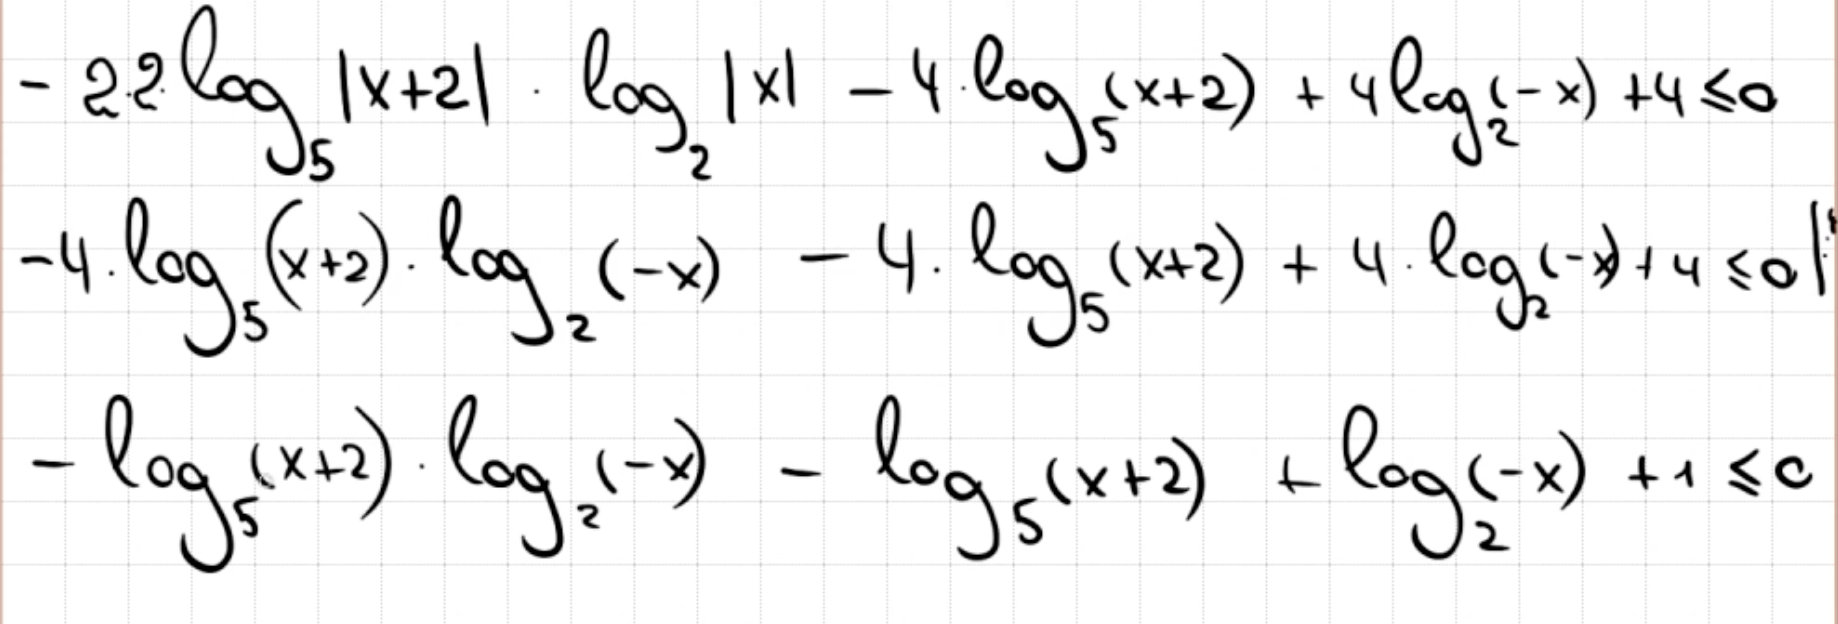 - 2·2·log₅|x+2| · log₂|x| - 4·log₅(x+2) + 4log₂(-x) + 4 ≤ 0
-4·log₅(x+2)·log₂(-x) - 4·log₅(x+2) + 4·log₂(-x) + 4 ≤ 0 |:
- log₅(x+2)·log₂(-x) - log₅(x+2) + log₂(-x) + 1 ≤ 0